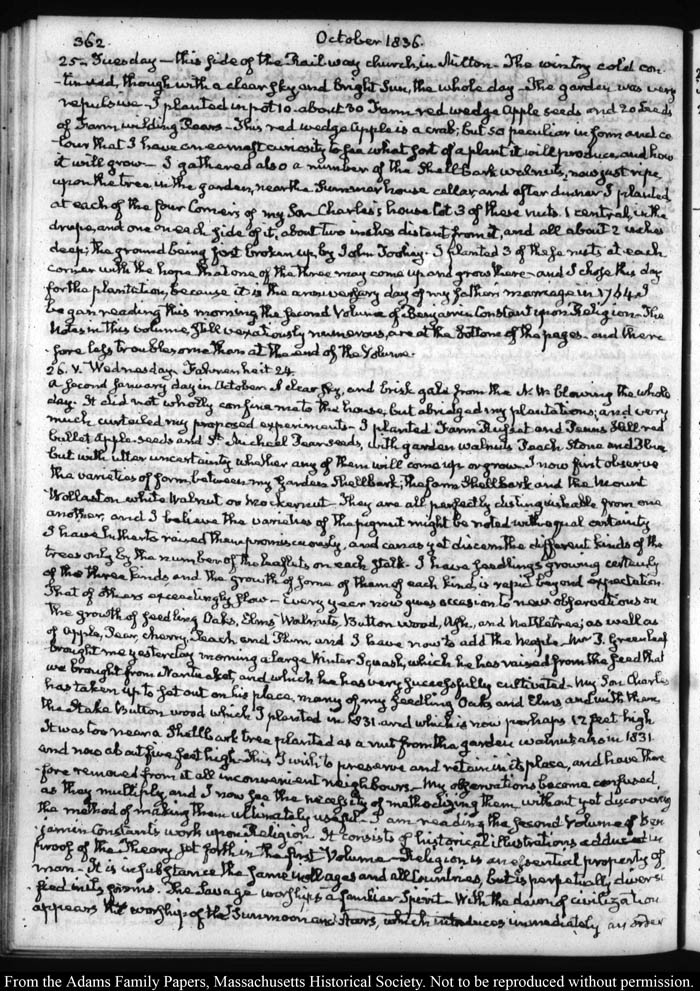 362.
October 1836.
25. Tuesday — this side of the Rail way church, in Milton — The wintry cold con-
tinued, though with a clear sky and bright Sun, the whole day — The garden was very
repulsive — I planted in pot 10. about 30 Farm red wedge Apple seeds and 20 seeds
of Farm wilding Pears — This red wedge Apple is a crab; but so peculiar in form and co-
lour that I have an earnest curiosity to see what sort of a plant it will produce, and how
it will grow — I gathered also a number of the Shellbark walnuts, now just ripe
upon the tree, in the garden, near the Summer house cellar, and after dinner I planted
at each of the four Corners of my Son Charles's house lot 3 of these nuts. 1 central, in the
and one on each side of it, about two inches distant from it, and all about 2 inches
deep; the ground being first broken up, by John I planted 3 of these nuts at each
corner with the hope that one of the three may come up and grow there — and I chose this day
for the plantation, because it is the anniversary day of my father's marriage in 1764. I
began reading this morning the second Volume of Benjamin Constant upon Religion — The
Notes in this volume, still vexatiously numerous, are at the bottom of the pages — and there-
fore less troublesome than at the end of the Volume.
26. V. Wednesday. Fahrenheit 24.
A second January day in October. A clear sky, and brisk gale from the N.W. blowing the whole
day. It did not wholly confine me to the house, but abridged my plantations; and very
much curtailed my proposed experiments — I planted Farm Russet and Penns Hill red
bullet Apple-seeds and St. Michael Pear seeds, with garden walnuts Peach Stone and Plum
but with utter uncertainty whether any of them will come up or grow. I now first observe
the varieties of form, between my garden Shellbark, the farm Shellbark and the Mount
Wollaston white Walnut or Mockernut — They are all perfectly distinguishable from one
another, and I believe the varieties of the pignut might be noted with equal certainty
I have hitherto raised them promiscuously, and can as yet discern the different kinds of the
trees only by the number of the leaflets on each stalk — I have seedlings growing certainly
of the three kinds and the growth of some of them of each kind, is rapid beyond expectation
That of others exceedingly slow — Every year now gives occasion to new observations on
the growth of seedling Oaks, Elms Walnuts, Button wood, Ash, and Nettletree; as well as
of Apple, Pear, Cherry, Peach and Plum, and I have now to add the Maple — Mr T. Greenleaf
brought me yesterday morning a large Winter Squash, which he has raised from the seed that
we brought from Nantucket, and which he has very successfully cultivated — My Son Charles
has taken up to set out on his place, many of my seedling Oaks and Elms and with them
the Button wood which I planted in 1831 and which is now perhaps 12 feet high
It was too near a Shellbark tree planted as a nut from the garden walnut also in 1831
and now about five feet high — This I wish to preserve and retain in its place, and have there-
fore removed from it all inconvenient neighbours — My observations become confused
as they multiply, and I now see the necessity of methodizing them, without yet discovering
the method of making them ultimately useful — I am reading the second Volume of Ben-
jamin Constant's work upon Religion. It consists of historical illustrations adduced in
proof of the Theory set forth in the first Volume — Religion is an essential property of
man — It is in substance the same in all ages and all Countries, but is perpetually diversi-
fied in its forms. The Savage worships a familiar Spirit — With the dawn of civilization
appears the worship of the Sun moon and Stars, which introduces immediately an order
From the Adams Family Papers, Massachusetts Historical Society. Not to be reproduced without permission.